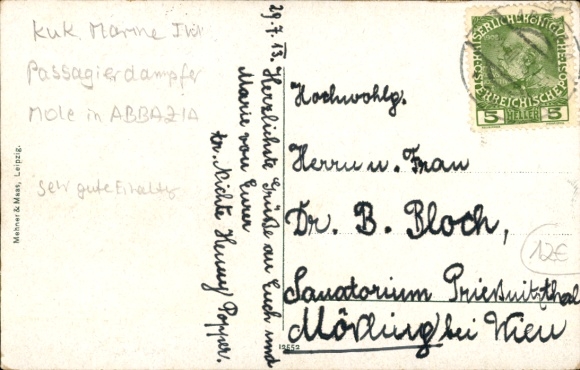 29.7.13.
Herzlichste Grüße an Euch und
Marie von Eurer
tr. Nichte Henny Popper.
Hochwohlg.
Herrn u. Frau
Dr. B. Bloch,
Sanatorium Prießnitzthal
Mödling bei Wien
KuK. Marine
Passagierdampfer
Mole in ABBAZIA
sehr gute Erhaltg
12€
Mehner & Maas, Leipzig.
12552
KAISERLICHE KÖNIGLICHE
ÖSTERREICHISCHE POST
5 HELLER 5